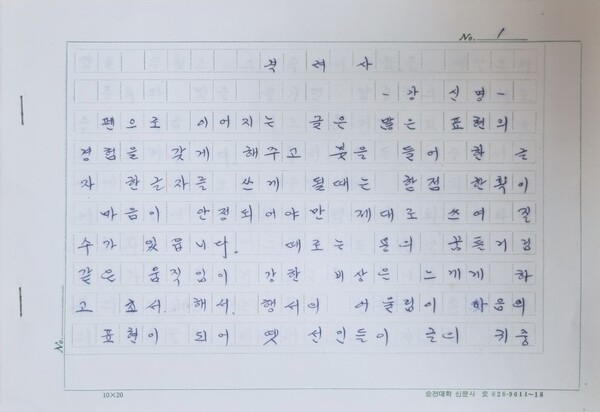 No. 1
격려사
- 강신명 -
펜으로 이어지는 글은 많은 표현의
경험을 갖게 해주고 붓을 들어 한 글
자 한글자를 쓰게 될때는 한점 한획이
마음이 안정되어야만 제대로 쓰여 질
수가 있읍니다. 때로는 용의 꿈틀거림
같은 움직임이 강한 비상은 느끼게 하
고 초서. 해서. 행서의 어울림이 마음의
표현이 되어 옛 선인들이 글의 키중
No.
10×20
숭전대학 신문사 ☎ 828-9611~18